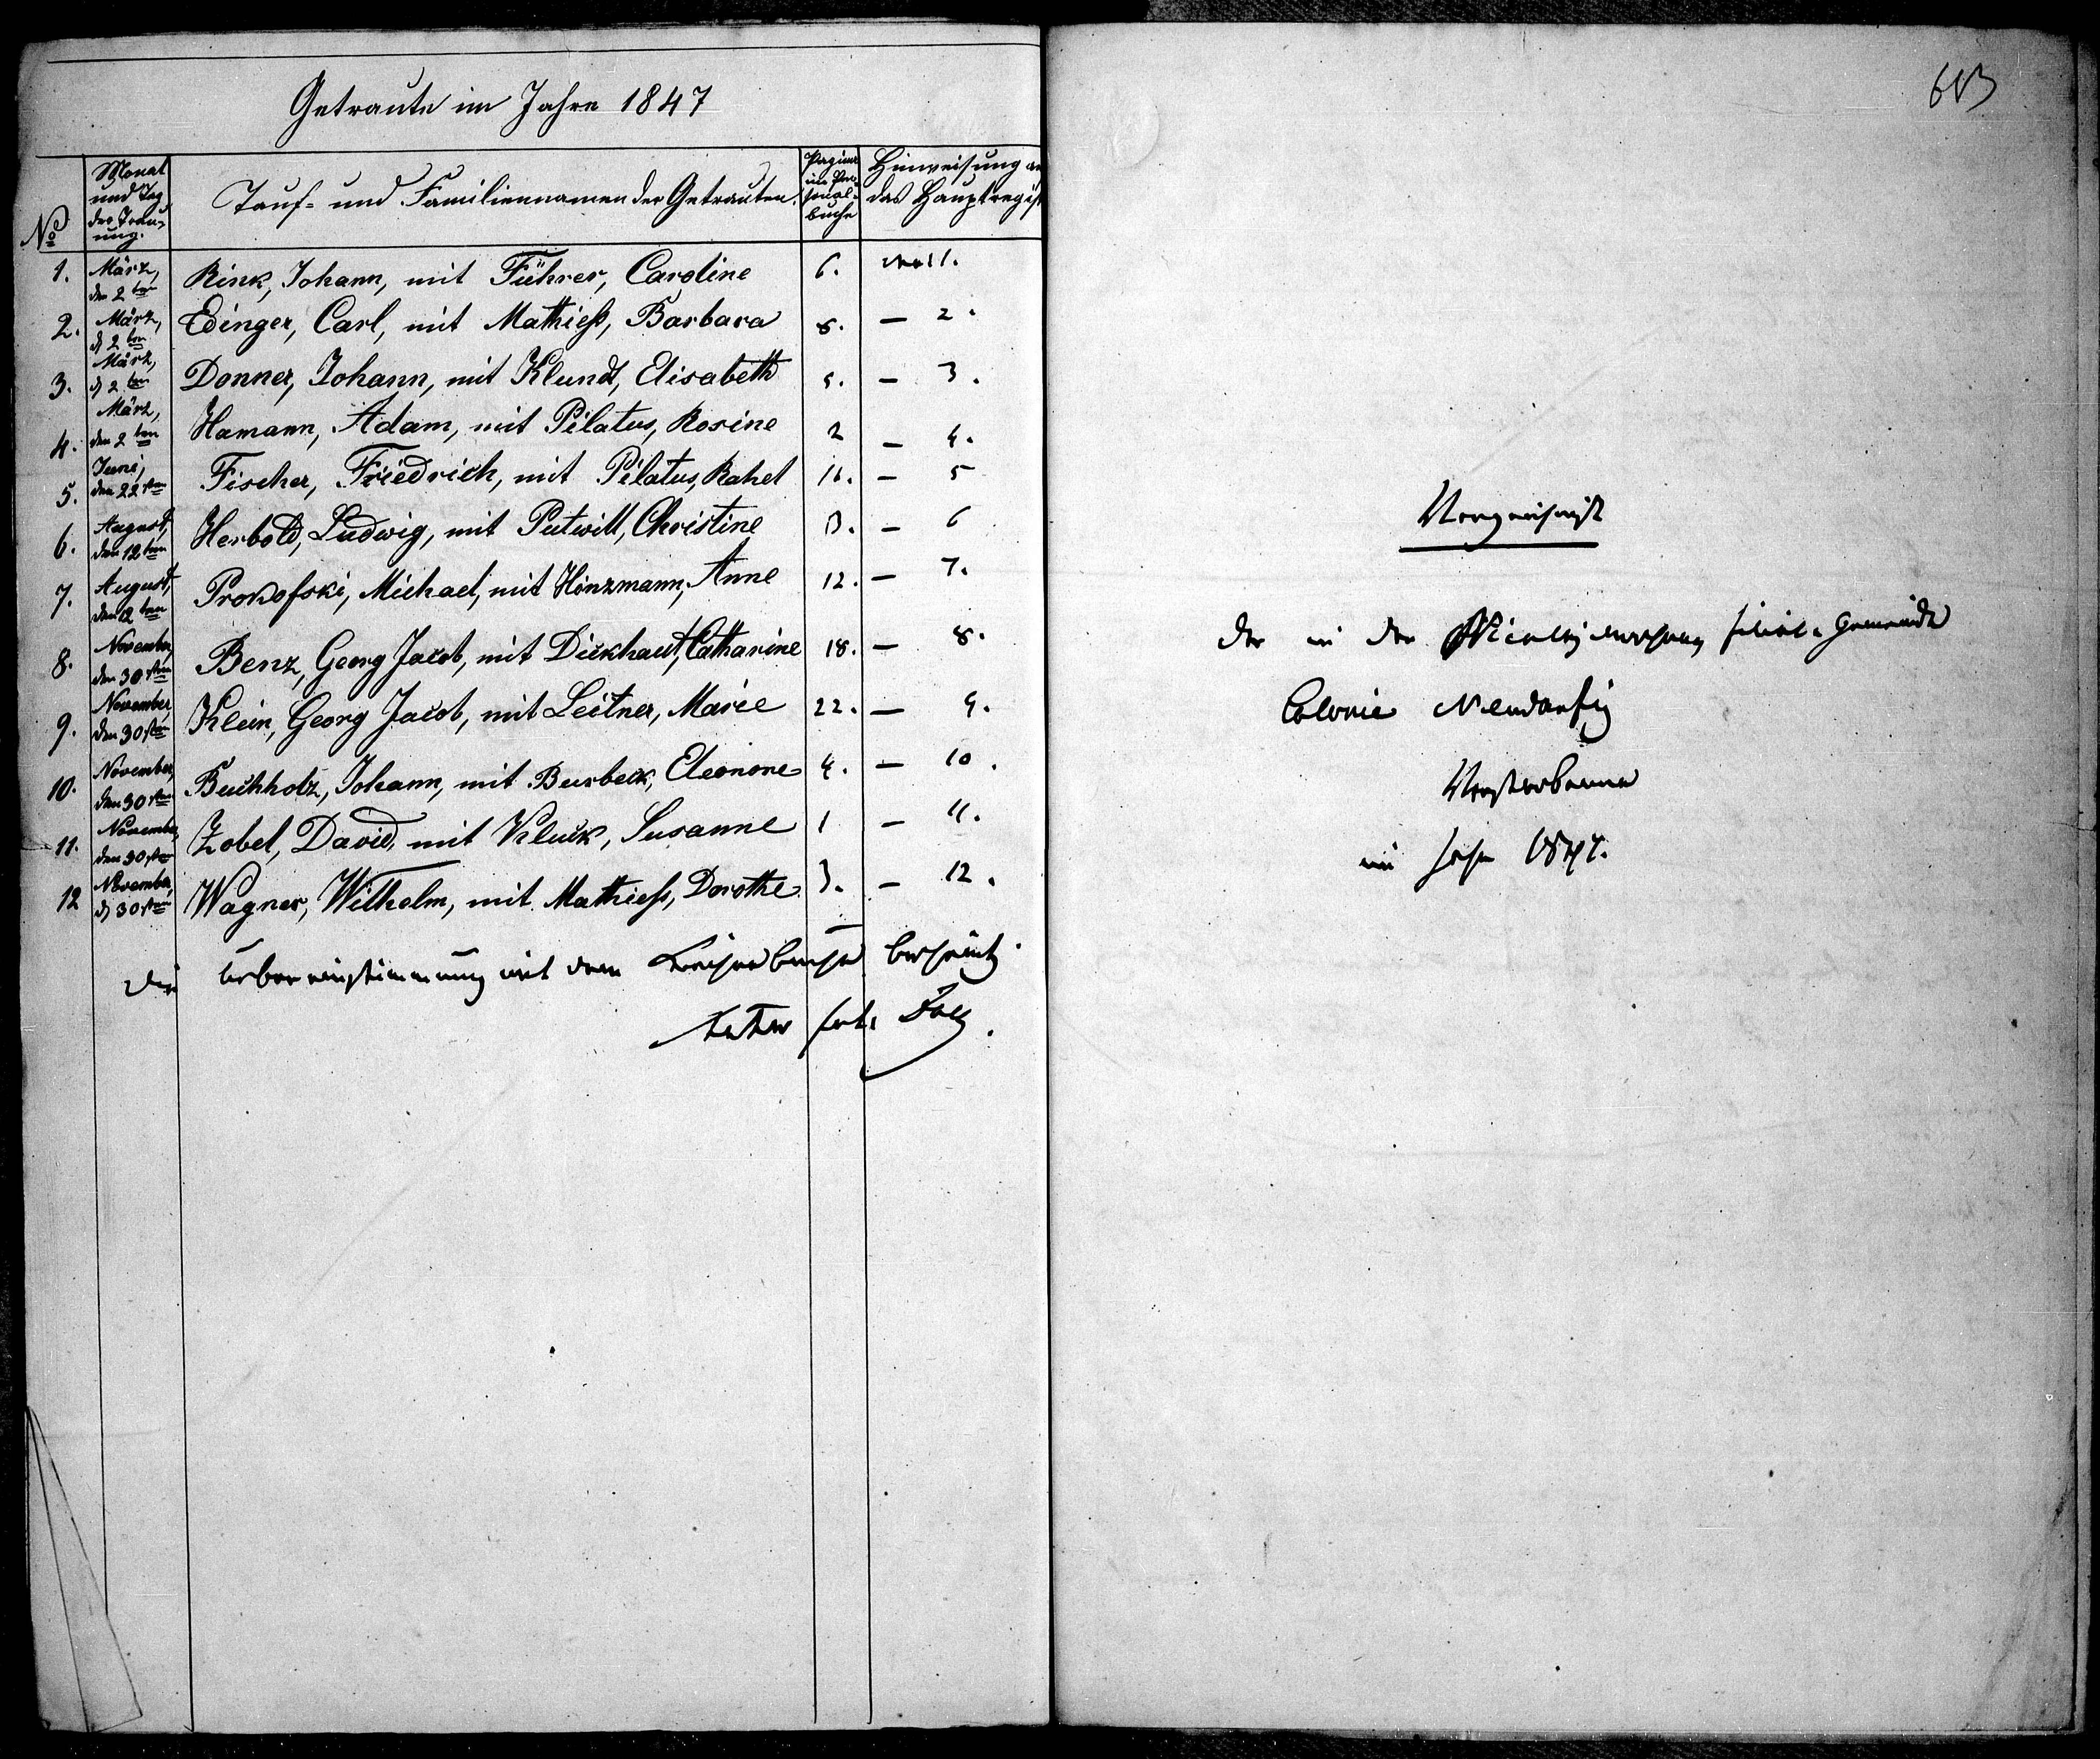 Getraute im Jahre 1847
№ Monat und Tag der Trau- ung. Tauf- und Familiennamen der Getrauten. Pagina im Per- sonal- buche Hinweisung an das Hauptregist
1. März, den 2ten Rink, Johann, mit Führer, Caroline 6. 1.
2. März, d 2ten Edinger, Carl, mit Mathieß, Barbara 8. — 2.
3. März, d 2ten Donner, Johann, mit Klundt, Elisabeth 5. — 3.
4. März, den 2ten Hamann, Adam, mit Pilatus, Rosine 2 — 4.
5. Juni, den 22sten Fischer, Friedrich, mit Pilatus, Rahel 16. — 5
6. August, den 12ten Herbold, Ludwig, mit Putwill, Christine 13. — 6
7. August, den 12ten Prokofski, Michael, mit Hinzmann, Anne 12. — 7.
8. November, den 30sten Benz, Georg Jacob, mit Dickhaut, Catharine 18. — 8.
9. November, den 30sten Klein, Georg Jacob, mit Leitner, Marie 22. — 9.
10. November, den 30sten Buchholz, Johann, mit Busbeck, Eleonore 4. — 10.
11. November, den 30sten Zobel, David, mit Kluck, Susanne 1 — 11.
12 November, d 30sten Wagner, Wilhelm, mit Mathieß, Dorothe 3. — 12.
Die Uebereinstimmung mit dem Kirchenbuche bescheinigt
Pastor
613
Verzeichniß
der in der filial-Gemeinde
Colonie Neudanzig
Verstorbenen
im Jahre 1847.